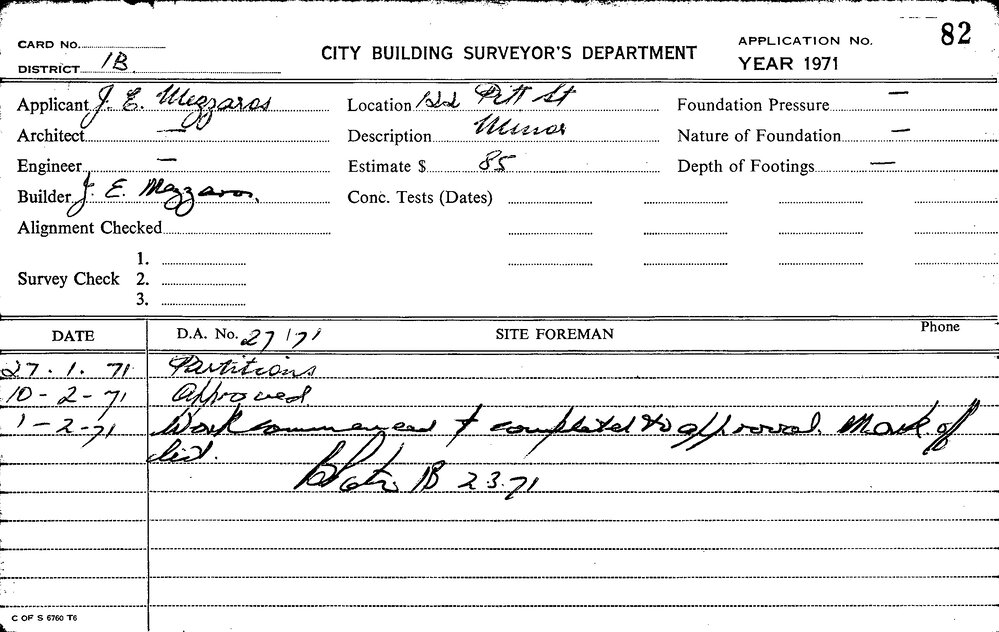 82
CARD No.
DISTRICT 1B
CITY BUILDING SURVEYOR'S DEPARTMENT
APPLICATION No.
YEAR 1971
Applicant J. E. Mezzaros Location 122 Pitt St Foundation Pressure —
Architect — Description Minor Nature of Foundation —
Engineer — Estimate $ 85 Depth of Footings —
Builder J. E. Mezzaros. Conc. Tests (Dates)
Alignment Checked
1.
Survey Check 2.
3.
DATE D.A. No. 27/71 SITE FOREMAN Phone
27. 1. 71 Partitions
10-2-71 Approved.
1-2-71 Work commenced + completed to approval. Mark off
list.
1B 2 3.71
C OF S 6760 T6